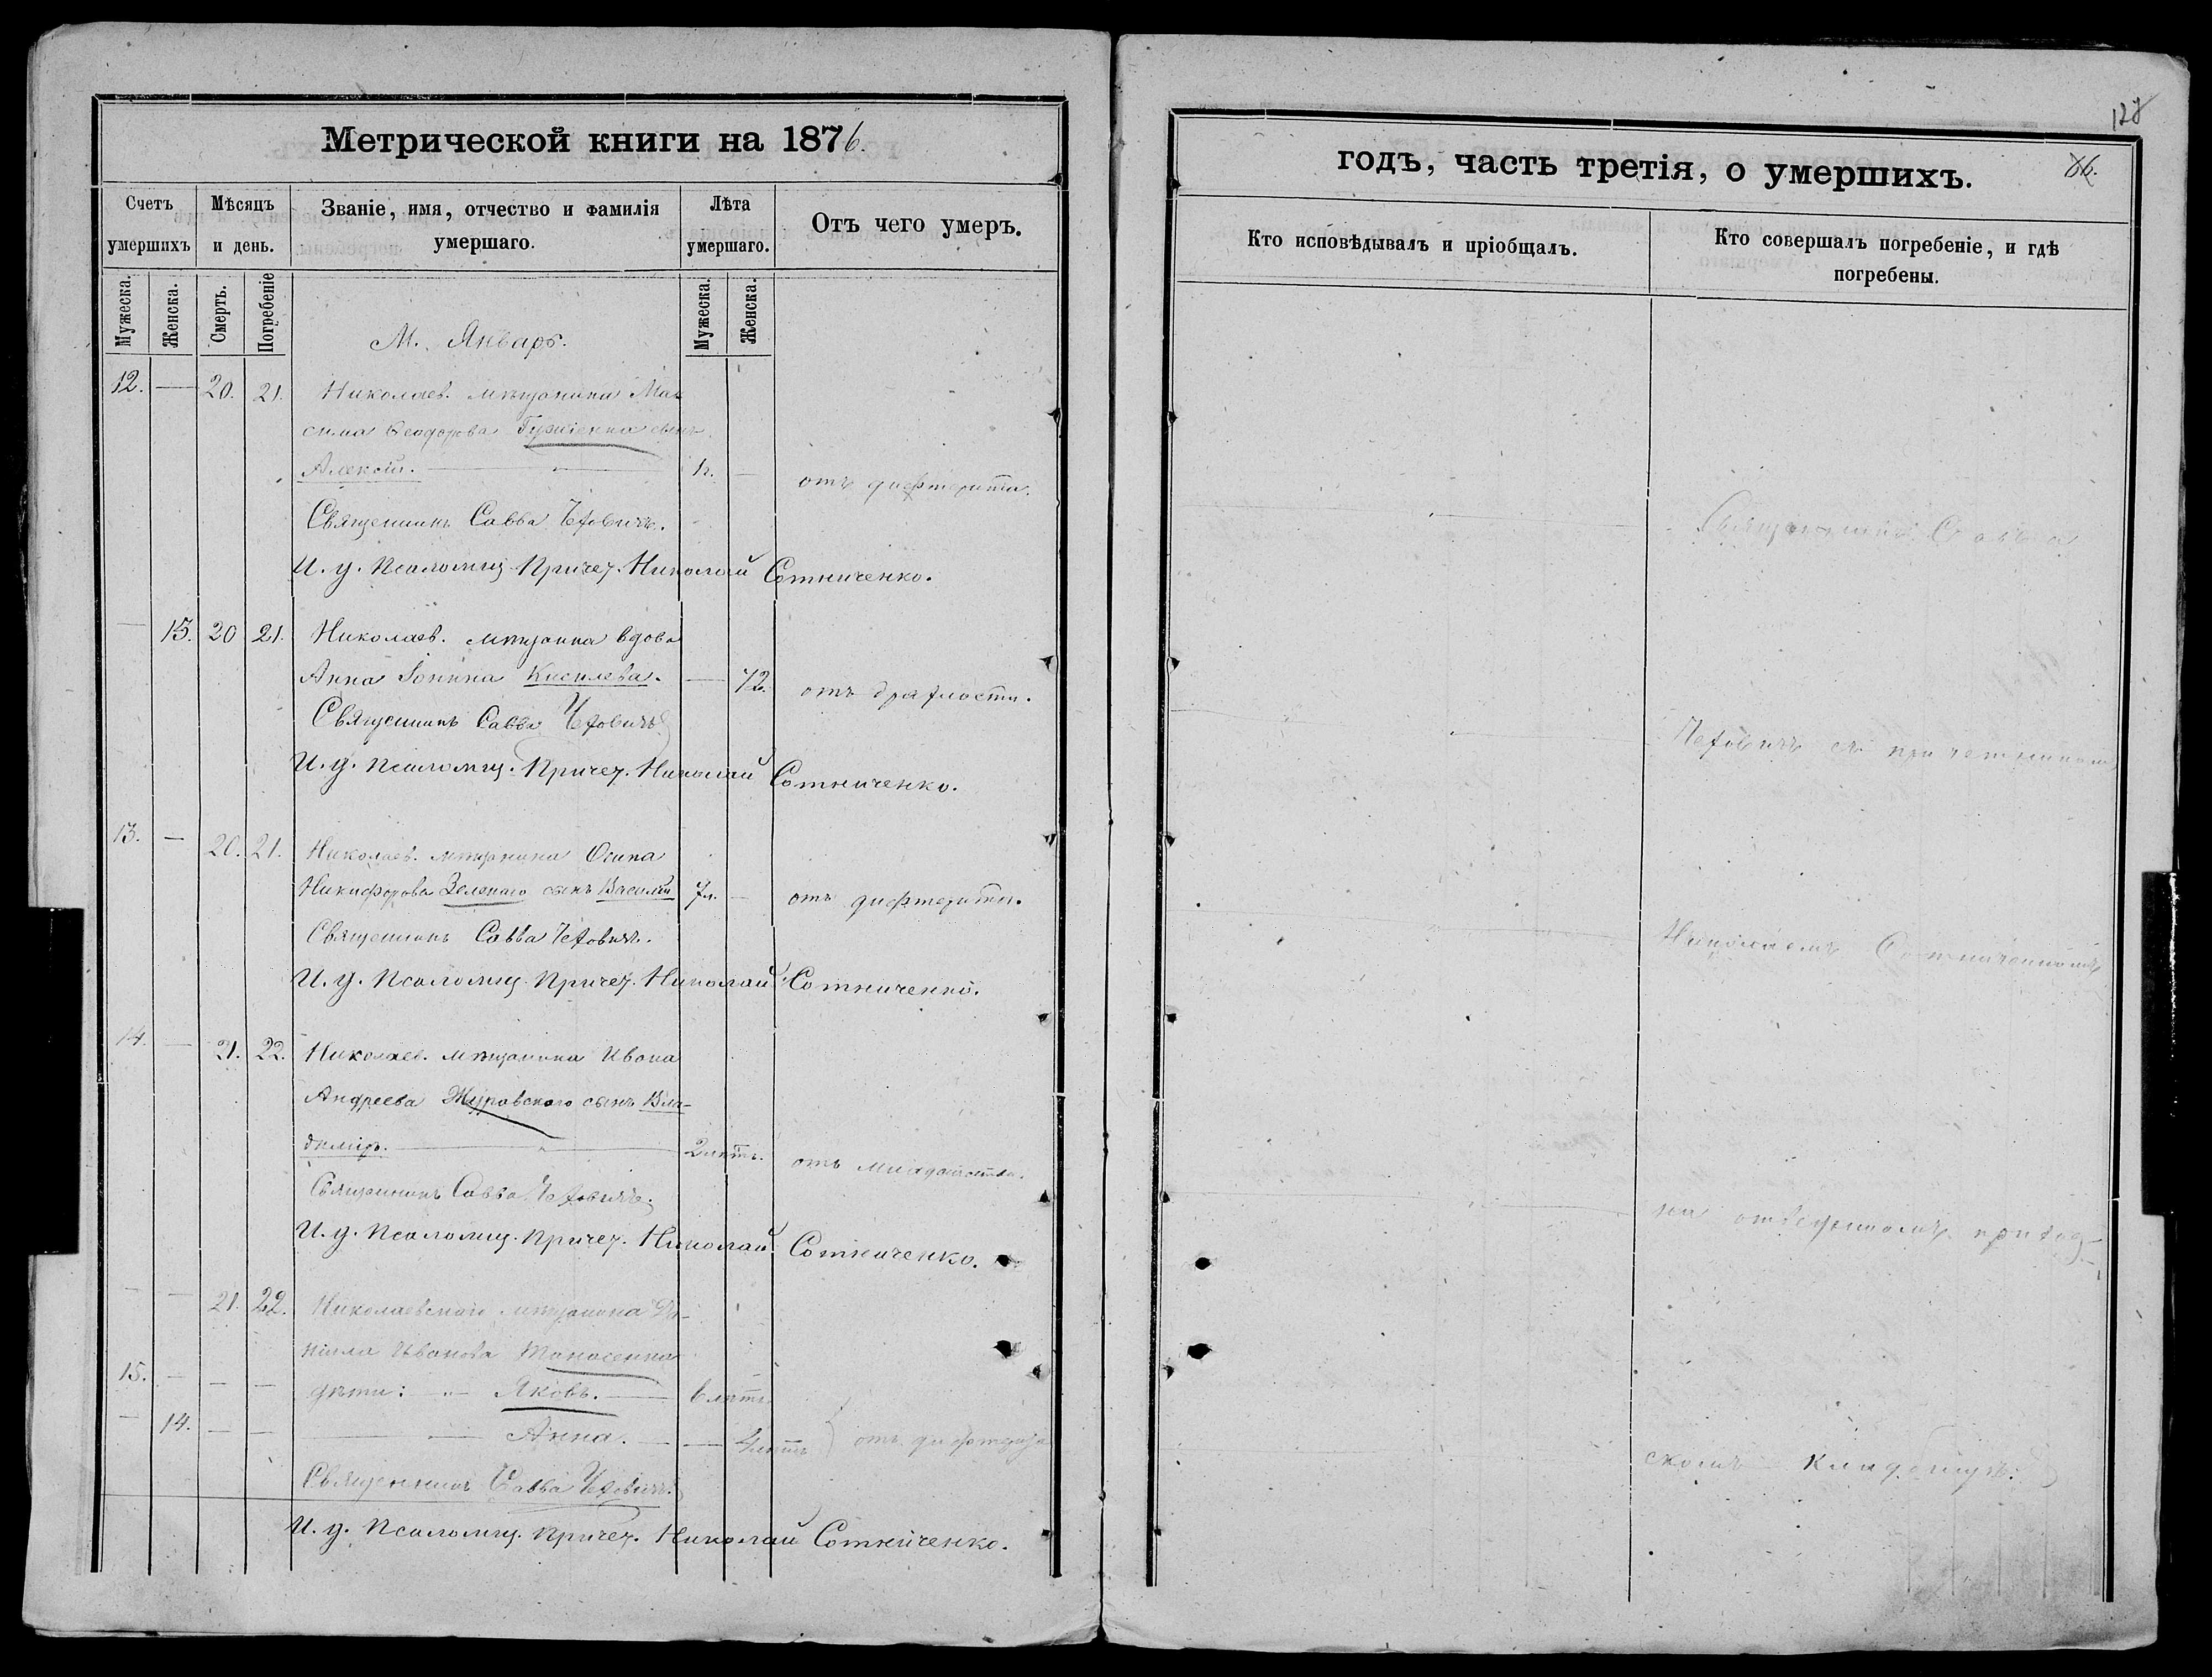 Метрической книги на 1876.
Счетъ умершихъ
Мѣсяцъ и день.
Званіе, имя, отчество и фамилія умершаго.
Лѣта умершаго.
Отъ чего умеръ.
Мужеска.
Женска.
Смерть.
Погребеніе
Мужеска.
Женска.
М. Январь.
12. — 20. 21. Николаев. мѣщанина Мак
сима Ѳеодорова сынъ
Алексій. — 1г. —
отъ дифтерита.
Священникъ Савва Чехович.
И. д. Псаломщ. Причет. Николай Сотниченко.
— 13. 20 21. Николаев. мѣщанка вдова
Анна Іонина Киселева. — 72. отъ дряхлости.
Священникъ Савва Чеховичъ
И. д. Псаломщ. Причет. Николай Сотниченко.
13. — 20. 21. Николаев. мѣщанина Осипа
Никифорова Зеленаго сынъ Василій 7л. — отъ дифтерита.
Священникъ Савва Чехович.
И. д. Псаломщ. Причет. Николай Сотниченко.
14. — 21. 22. Николаев. мѣщанина Ивана
Андреева Журавскаго сынъ Вла-
димір. — 2 лѣтъ. отъ младенчества.
Священникъ Савва Чехович.
И. д. Псаломщ. Причет. Николай Сотниченко.
— — 21. 22. Николаевскаго мѣщанина Да-
ніила Иванова Танасенка
15. — — — дѣти: „ Яковъ. — 6 лѣтъ
— 14. — — Анна. — — 4 лѣтъ } отъ дифтерита
Священникъ Савва Чеховичъ
И. д. Псаломщ. Причет. Николай Сотниченко.
128
86.
годъ, часть третія, о умершихъ.
Кто исповѣдывалъ и пріобщалъ.
Кто совершалъ погребеніе, и гдѣ погребены.
Священникъ Савва
Чеховичъ съ причетникомъ
Николаемъ Сотниченкомъ
на отведенномъ приход-
скомъ кладбищѣ.